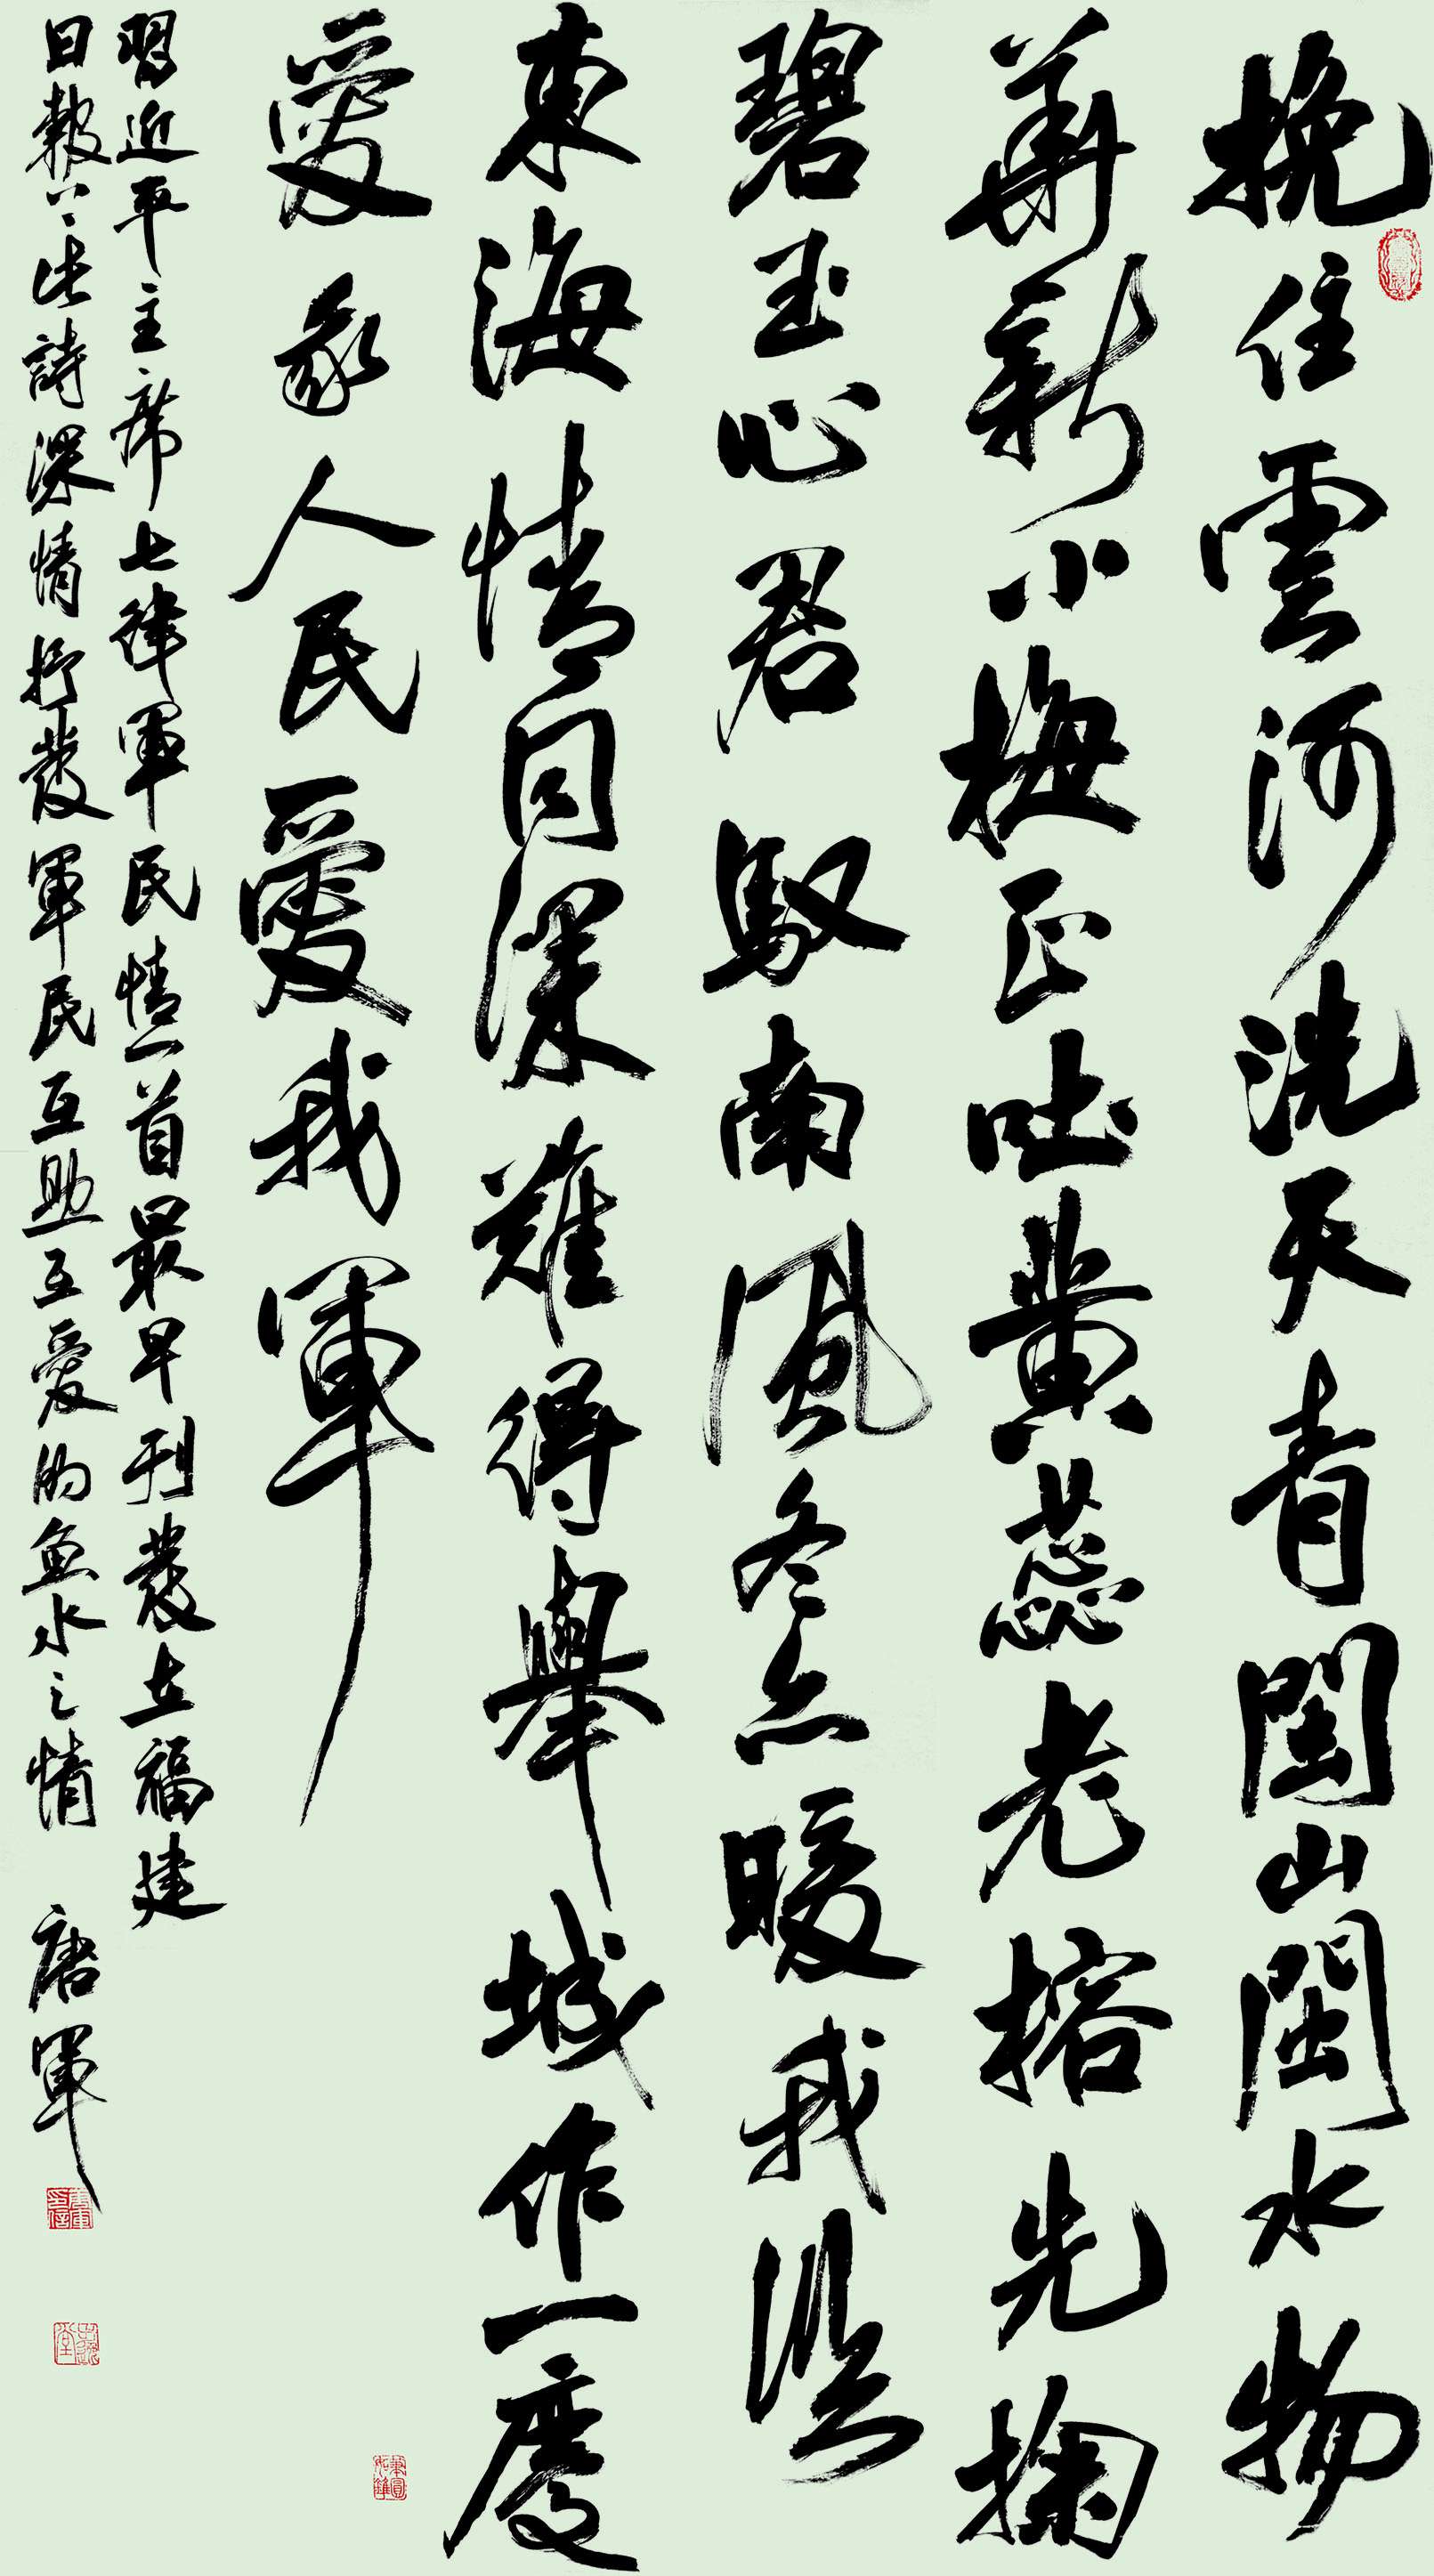 挽住雲河洗天青閩山閩水物
華新小梅正吐黄蕊老榕先掬
碧玉心君馭南風冬亦暖我臨
東海情同深難得舉城作一慶
愛我人民愛我軍
習近平主席七律軍民情一首最早刊發在福建
日報上此詩深情抒發軍民互助互愛的魚水之情 唐軍